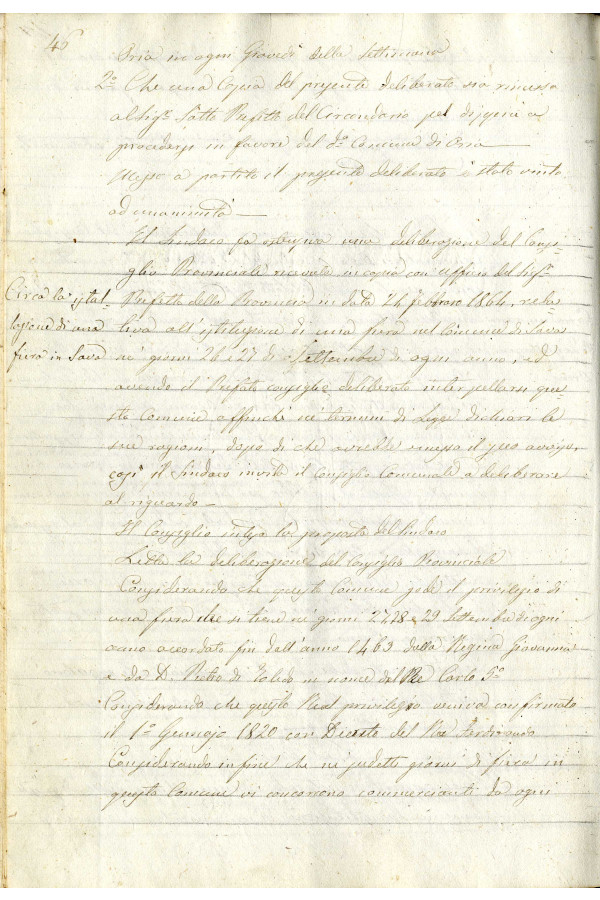 46
Oria in ogni Giovedì della settimana
2.° Che una Copia del presente deliberato sia rimessa
al Sig.r Sotto Prefetto del Circondario pel disponi a
procedersi in favore del d.o Comune di Oria
Messo a partito il presente deliberato è stato vinto
ad unanimità
Il Sindaco fa ostensiva una deliberazione del Consi-
glio Provinciale ricevuta in copia con ufficio del Sig.r
Circa la istal-
lazione di una
fiera in Sava
Prefetto della Provincia in data 24 febbraro 1864, rela-
tiva all'istituzione di una fiera nel Comune di Sava
ne' giorni 26 e 27 di Settembre di ogni anno, ed
avendo il Prefato consiglio deliberato interpellarsi que-
sto Comune affinchè ne' termini di Legge dichiari le
sue ragioni, dopo di che avrebbe emesso il suo avviso,
così il Sindaco invita il Consiglio Comunale a deliberare
al riguardo
Il Consiglio intesa la proposta del Sindaco
Letta la deliberazione del Consiglio Provinciale
Considerando che questo Comune gode il privilegio di
una fiera che si tiene ne' giorni 27, 28 e 29 Settembre di ogni
anno accordato fin dall'anno 1463 dalla Regina Giovanna
e da D. Pietro di Toledo in nome del Re Carlo 5.°
Considerando che questo Real privilegio veniva confirmato
il 1.° Gennajo 1820 con Decreto del Re Ferdinando
Considerando infine che ne' sudetti giorni di fiera in
questo Comune vi concorrono commercianti da ogni